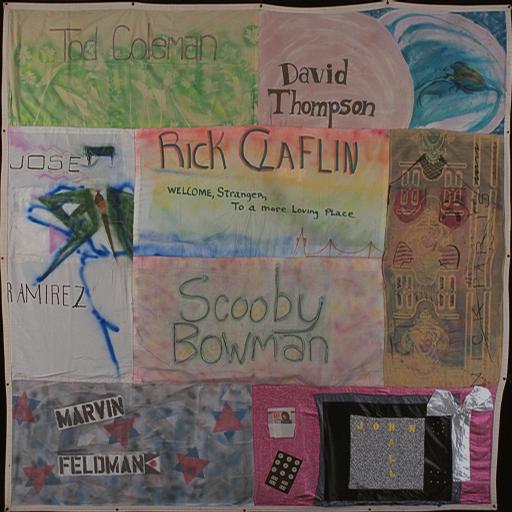 Tod Coleman
David
Thompson
JOSE
RAMIREZ
RICK CLAFLIN
WELCOME, Stranger,
To a more Loving Place
Scooby
Bowman
MARVIN
FELDMAN
JOHN
HALL